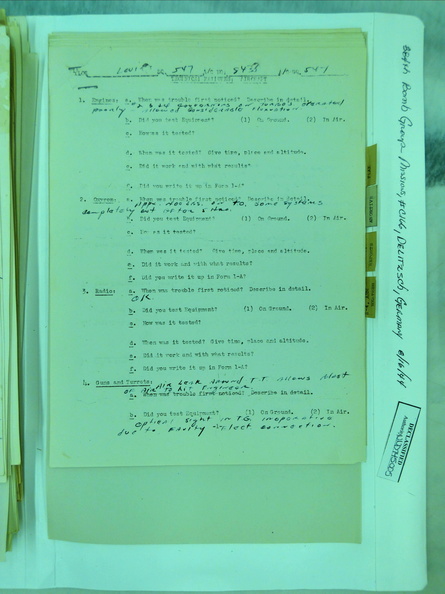 Lewis 547 A/C NO. 8438 547
1. Engines: a. When was trouble first noticed? Describe in detail.
poorly allowed considerable
b. Did you test Equipment? (1) On Ground. (2) In Air.
c. How was it tested?
d. When was it tested? Give time, place and altitude.
e. Did it work and with what results?
f. Did you write it up in Form 1-A?
2. Oxygen: a. When was trouble first noticed? Describe in detail.
some systems
completely out after 5 hrs.
b. Did you test Equipment? (1) On Ground. (2) In Air.
c. How was it tested?
d. When was it tested? Give time, place and altitude.
e. Did it work and with what results?
f. Did you write it up in Form 1-A?
3. Radio: a. When was trouble first noticed? Describe in detail.
OK
b. Did you test Equipment? (1) On Ground. (2) In Air.
a. How was it tested?
d. When was it tested? Give time, place and altitude.
e. Did it work and with what results?
f. Did you write it up in Form 1-A?
4. Guns and Turrets: Air Leak Around T.T. allows blast
of air to hit Engineer.
a. When was trouble first noticed? Describe in detail.
b. Did you test Equipment? (1) On Ground. (2) In Air.
Optical sight in T.G. inoperative
due to faulty select connection.
Bomb Group Missions, #C166, DELITZSCH, GERMANY 8/16/44
DECLASSIFIED
Authority NND745005